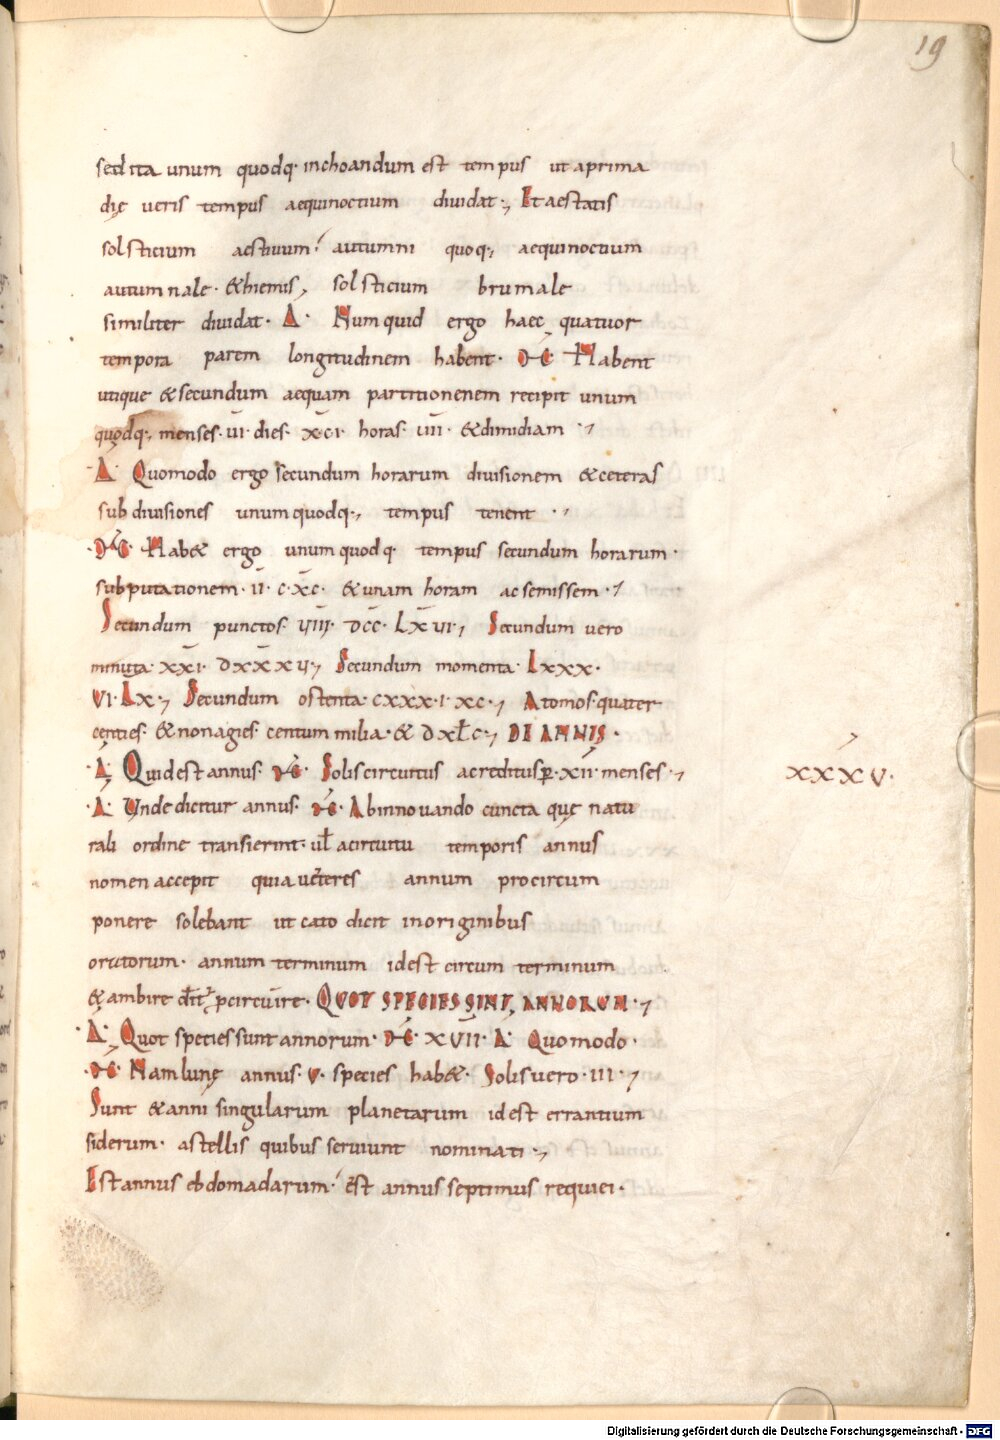 19
sed ita unum quodq· inchoandum est tempus ut aprima
dię ueris tempus aequinoctium diuidat·, Et aestatis
solsticium aestiuum· autumni quoq·, aequinoctium
autumnale· &hiemis, solsticium brumale
similiter diuidat· Δ· Numquid ergo haec quatuor
tempora parem longitudinem habent· M· Habent
utique &secundum aequam partitionenem recipit unum
quodq·, menses· ui· dies· xci· horas· uii· &dimidiam ·,
Δ· Quomodo ergo secundum horarum diuisionem &ceteras
subdiuisiones unumquodq·, tempus tenent ·,
·M· Hab& ergo unumquodq· tempus secundum horarum·
subputationem· ii· c·xc· &unam horam ac semissem·,
Secundum punctos· uiii· dcc· Lxui, Secundum uero
minuta· xxi· dxxxu, Secundum momenta· Lxxx·
vi· Lx·, Secundum ostenta· cxxx·i·xc·, Atomos· quater
centies· &nonagies· centum milia· & dxLc·, DE ANNIS·
·Δ· Quid est annus· M· Solis circuitus ac reditus p· xii· menses·,
xxxv·
·Δ· Unde dicitur annus· M· Ab innouando cuncta quę natu
rali ordine transierint· uł a circuitu temporis annus
nomen accepit quia ueteres annum pro circum
ponere solebant ut cato dicit in originibus
oratorum· annum terminum id est circum terminum
&ambire dr̄ p circuire· QUOT SPECIES SINT, ANNORUM·,
·Δ· Quot species sunt annorum· M· XVII· Δ· Quomodo·
·M· Nam lunę annus· v· species hab&· Solis uero· iii·,
Sunt &anni singularum planetarum id est errantium
siderum· a stellis quibus seruiunt nominati·,
Est annus ebdomadarum· est annus septimus requiei·
Digitalisierung gefördert durch die Deutsche Forschungsgemeinschaft - DFG